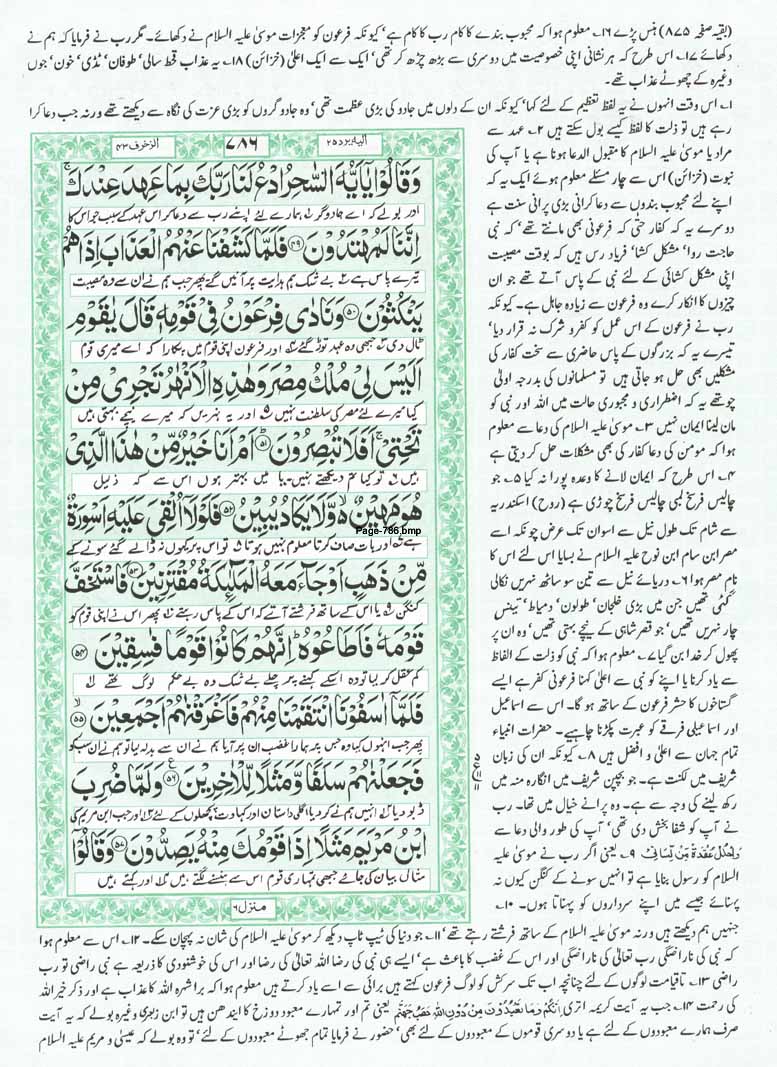 (بقیہ صفحہ ۸۷۵) ہنس پڑے ۱۶۔ معلوم ہوا کہ محبوب بندے کا کام رب کا کام ہے' کیونکہ فرعون کو معجزات موسیٰ علیہ السلام نے دکھائے۔ مگر رب نے فرمایا کہ ہم نے
دکھائے ۱۷۔ اس طرح کہ ہر نشانی اپنی خصوصیت میں دوسری سے بڑھ چڑھ کر تھی' ایک سے ایک اعلیٰ (خزائن) ۱۸۔ یہ عذاب قحط سالی' طوفان' ٹڈی' خون' جوں
وغیرہ کے چھوٹے عذاب تھے۔
۱۔ اس وقت انہوں نے یہ لفظ تعظیم کے لئے کہا' کیونکہ ان کے دلوں میں جادو کی بڑی عظمت تھی' وہ جادوگروں کو بڑی عزت کی نگاہ سے دیکھتے تھے ورنہ جب دعا کرا
رہے ہیں تو ذلت کا لفظ کیسے بول سکتے ہیں ۲۔ عہد سے
مراد یا موسیٰ علیہ السلام کا مقبول الدعا ہونا ہے یا آپ کی
نبوت (خزائن) اس سے چار مسئلے معلوم ہوئے ایک یہ کہ
اپنے لئے محبوب بندوں سے دعا کرانی بڑی پرانی سنت ہے
دوسرے یہ کہ کفار حتیٰ کہ فرعونی بھی مانتے تھے' کہ نبی
حاجت روا' مشکل کشا' فریاد رس ہیں کہ بوقت مصیبت
اپنی مشکل کشائی کے لئے نبی کے پاس آتے تھے جو ان
چیزوں کا انکار کرے وہ فرعون سے زیادہ جاہل ہے۔ کیونکہ
رب نے فرعون کے اس عمل کو کفر و شرک نہ قرار دیا'
تیسرے یہ کہ بزرگوں کے پاس حاضری سے سخت کفار کی
مشکلیں بھی حل ہو جاتی ہیں تو مسلمانوں کی بدرجہ اولیٰ
چوتھے یہ کہ اضطراری و مجبوری حالت میں اللہ اور نبی کو
مان لینا ایمان نہیں ۳۔ موسیٰ علیہ السلام کی دعا سے معلوم
ہوا کہ مومن کی دعا کفار کی بھی مشکلات حل کر دیتی ہے
۴۔ اس طرح کہ ایمان لانے کا وعدہ پورا نہ کیا ۵۔ جو
چالیس فرسخ لمبی چالیس فرسخ چوڑی ہے (روح) اسکندریہ
سے شام تک طول نیل سے اسوان تک عرض چونکہ اسے
مصر ابن سام ابن نوح علیہ السلام نے بسایا اس لئے اس کا
نام مصر ہوا ۶۔ دریائے نیل سے تین سو ساٹھ نہریں نکالی
گئی تھیں جن میں بڑی خلجان' طولون' دمیاط'
چار نہریں تھیں' جو قصر شاہی کے نیچے بہتی تھیں' وہ ان پر
پھول کر خدا بن گیا ۷۔ معلوم ہوا کہ نبی کو ذلت کے الفاظ
سے یاد کرنا یا اپنے کو نبی سے اعلیٰ کہنا فرعونی کفر ہے ایسے
گستاخوں کا حشر فرعون کے ساتھ ہو گا۔ اس سے اسماعیل
اور اسماعیلی فرقے کو عبرت پکڑنا چاہیے۔ حضرات انبیاء
تمام جہان سے اعلیٰ و افضل ہیں ۸۔ کیونکہ ان کی زبان
شریف میں لکنت ہے۔ جو بچپن شریف میں انگارہ منہ میں
رکھ لینے کی وجہ سے ہے۔ وہ پرانے خیال میں تھا۔ رب
نے آپ کو شفا بخش دی تھی' آپ کی طور والی دعا سے
وَاحْلُلْ عُقْدَةً مِّن لِّسَانِي ۹۔ یعنی اگر رب نے موسیٰ علیہ
السلام کو رسول بنایا ہے تو انہیں سونے کے کنگن کیوں نہ
پہنائے جیسے میں اپنے سرداروں کو پہناتا ہوں۔ ۱۰۔
الیہ یرد ۲۵
۷۸۶
الزخرف ۴۳
وَقَالُوْا يٰۤاَيُّهَ السّٰحِرُ ادْعُ لَنَا رَبَّكَ بِمَا عَهِدَ عِنْدَكَ ۚ
اور بولے کہ اے جادوگر ۱ ہمارے لئے اپنے رب سے دعا کر اس عہد کے سبب جو اس کا
اِنَّنَا لَمُهْتَدُوْنَ ﴿۴۹﴾ فَلَمَّا كَشَفْنَا عَنْهُمُ الْعَذَابَ اِذَا هُمْ
تیرے پاس ہے ۲ بے شک ہم ہدایت پر آئیں گے پھر جب ہم نے ان سے وہ مصیبت
يَنْكُثُوْنَ ﴿۵۰﴾ وَنَادٰى فِرْعَوْنُ فِيْ قَوْمِهٖ قَالَ يٰقَوْمِ
ٹال دی ۳ جبھی وہ عہد توڑ گئے ۴ اور فرعون اپنی قوم میں پکارا کہ اے میری قوم
اَلَيْسَ لِيْ مُلْكُ مِصْرَ وَهٰذِهِ الْاَنْهٰرُ تَجْرِيْ مِنْ
کیا میرے لئے مصر کی سلطنت نہیں ۵ اور یہ نہریں کہ میرے نیچے بہتی ہیں
تَحْتِيْ ۚ اَفَلَا تُبْصِرُوْنَ ﴿۵۱﴾ اَمْ اَنَا خَيْرٌ مِّنْ هٰذَا الَّذِيْ
ہیں ۶ تو کیا تم دیکھتے نہیں۔ یا میں بہتر ہوں اس سے کہ ذلیل
هُوَ مَهِيْنٌ ۙ وَّلَا يَكَادُ يُبِيْنُ ﴿۵۲﴾ فَلَوْلَاۤ اُلْقِيَ عَلَيْهِ اَسْوِرَةٌ
Page-786.bmp
ہے ۷ اور بات صاف کرتا معلوم نہیں ہوتا ۸ تو اس پر کیوں نہ ڈالے گئے سونے کے
مِّنْ ذَهَبٍ اَوْ جَآءَ مَعَهُ الْمَلٰٓئِكَةُ مُقْتَرِنِيْنَ ﴿۵۳﴾ فَاسْتَخَفَّ
کنگن ۹ یا اس کے ساتھ فرشتے آتے کہ اس کے پاس رہتے ۱۰ پھر اس نے اپنی قوم کو
قَوْمَهٗ فَاَطَاعُوْهُ ۚ اِنَّهُمْ كَانُوْا قَوْمًا فٰسِقِيْنَ ﴿۵۴﴾
کم عقل کر لیا تو وہ اسکے کہنے پر چلے بے شک وہ بے حکم لوگ تھے ۱۱
فَلَمَّاۤ اٰسَفُوْنَا انْتَقَمْنَا مِنْهُمْ فَاَغْرَقْنٰهُمْ اَجْمَعِيْنَ ﴿۵۵﴾
پھر جب انہوں کیا وہ جس پہ ہمارا غضب ان پر آیا ہم نے ان سے بدلہ لیا تو ہم نے ان سب کو
فَجَعَلْنٰهُمْ سَلَفًا وَّمَثَلًا لِّلْاٰخِرِيْنَ ﴿۵۶﴾ وَلَمَّا ضُرِبَ
ڈبو دیا ۱۲ انہیں ہم نے کر دیا اگلی داستان اور کہاوت پچھلوں کے لئے ۱۳ اور جب ابن مریم کی
ابْنُ مَرْيَمَ مَثَلًا اِذَا قَوْمُكَ مِنْهُ يَصِدُّوْنَ ﴿۵۷﴾ وَقَالُوْۤا
مثال بیان کی جائے جبھی تمہاری قوم اس سے ہنسنے لگتے ہیں ۱۴ اور کہتے ہیں
منزل ۶
جنہیں ہم دیکھتے ہیں ورنہ موسیٰ علیہ السلام کے ساتھ فرشتے رہتے تھے' ۱۱۔ جو دنیا کی ٹیپ ٹاپ دیکھ کر موسیٰ علیہ السلام کی شان نہ پہچان سکے۔ ۱۲۔ اس سے معلوم ہوا
کہ نبی کی ناراضگی رب تعالیٰ کی ناراضگی اور اس کے غضب کا باعث ہے' ایسے ہی نبی کی رضا اللہ تعالیٰ کی رضا اور اس کی خوشنودی کا ذریعہ ہے نبی راضی تو رب
راضی ۱۳۔ تاقیامت لوگوں کے لئے چنانچہ اب تک سرکش کو لوگ فرعون کہتے ہیں برائی سے اسے یاد کرتے ہیں معلوم ہوا کہ برا شہرہ اللہ کا عذاب ہے اور ذکر خیر اللہ
کی رحمت ۱۴۔ جب یہ آیت کریمہ اتری اِنَّكُمْ وَمَا تَعْبُدُوْنَ مِنْ دُوْنِ اللّٰهِ حَصَبُ جَهَنَّمَ یعنی تم اور تمہارے معبود دوزخ کا ایندھن ہیں تو ابن زبعری وغیرہ بولے کہ یہ آیت
صرف ہمارے معبودوں کے لئے ہے یا دوسری قوموں کے معبودوں کے لئے بھی' حضور نے فرمایا تمام جھوٹے معبودوں کے لئے' تو وہ بولے کہ عیسیٰ و مریم علیہ السلام